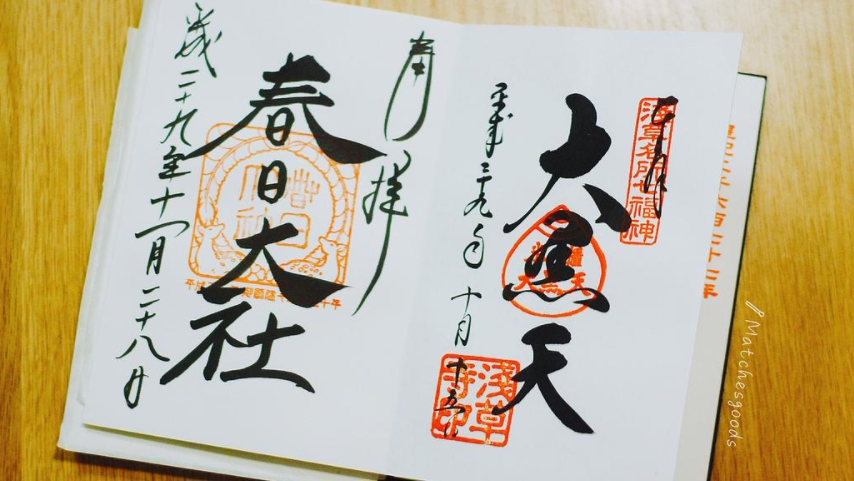 浅草名所七福神
奉拝
大黒天
平成二十九年十月十五日
淺草寺印
奉拝
春日大社
平成二十九年十一月二十八日
Matchesgoods